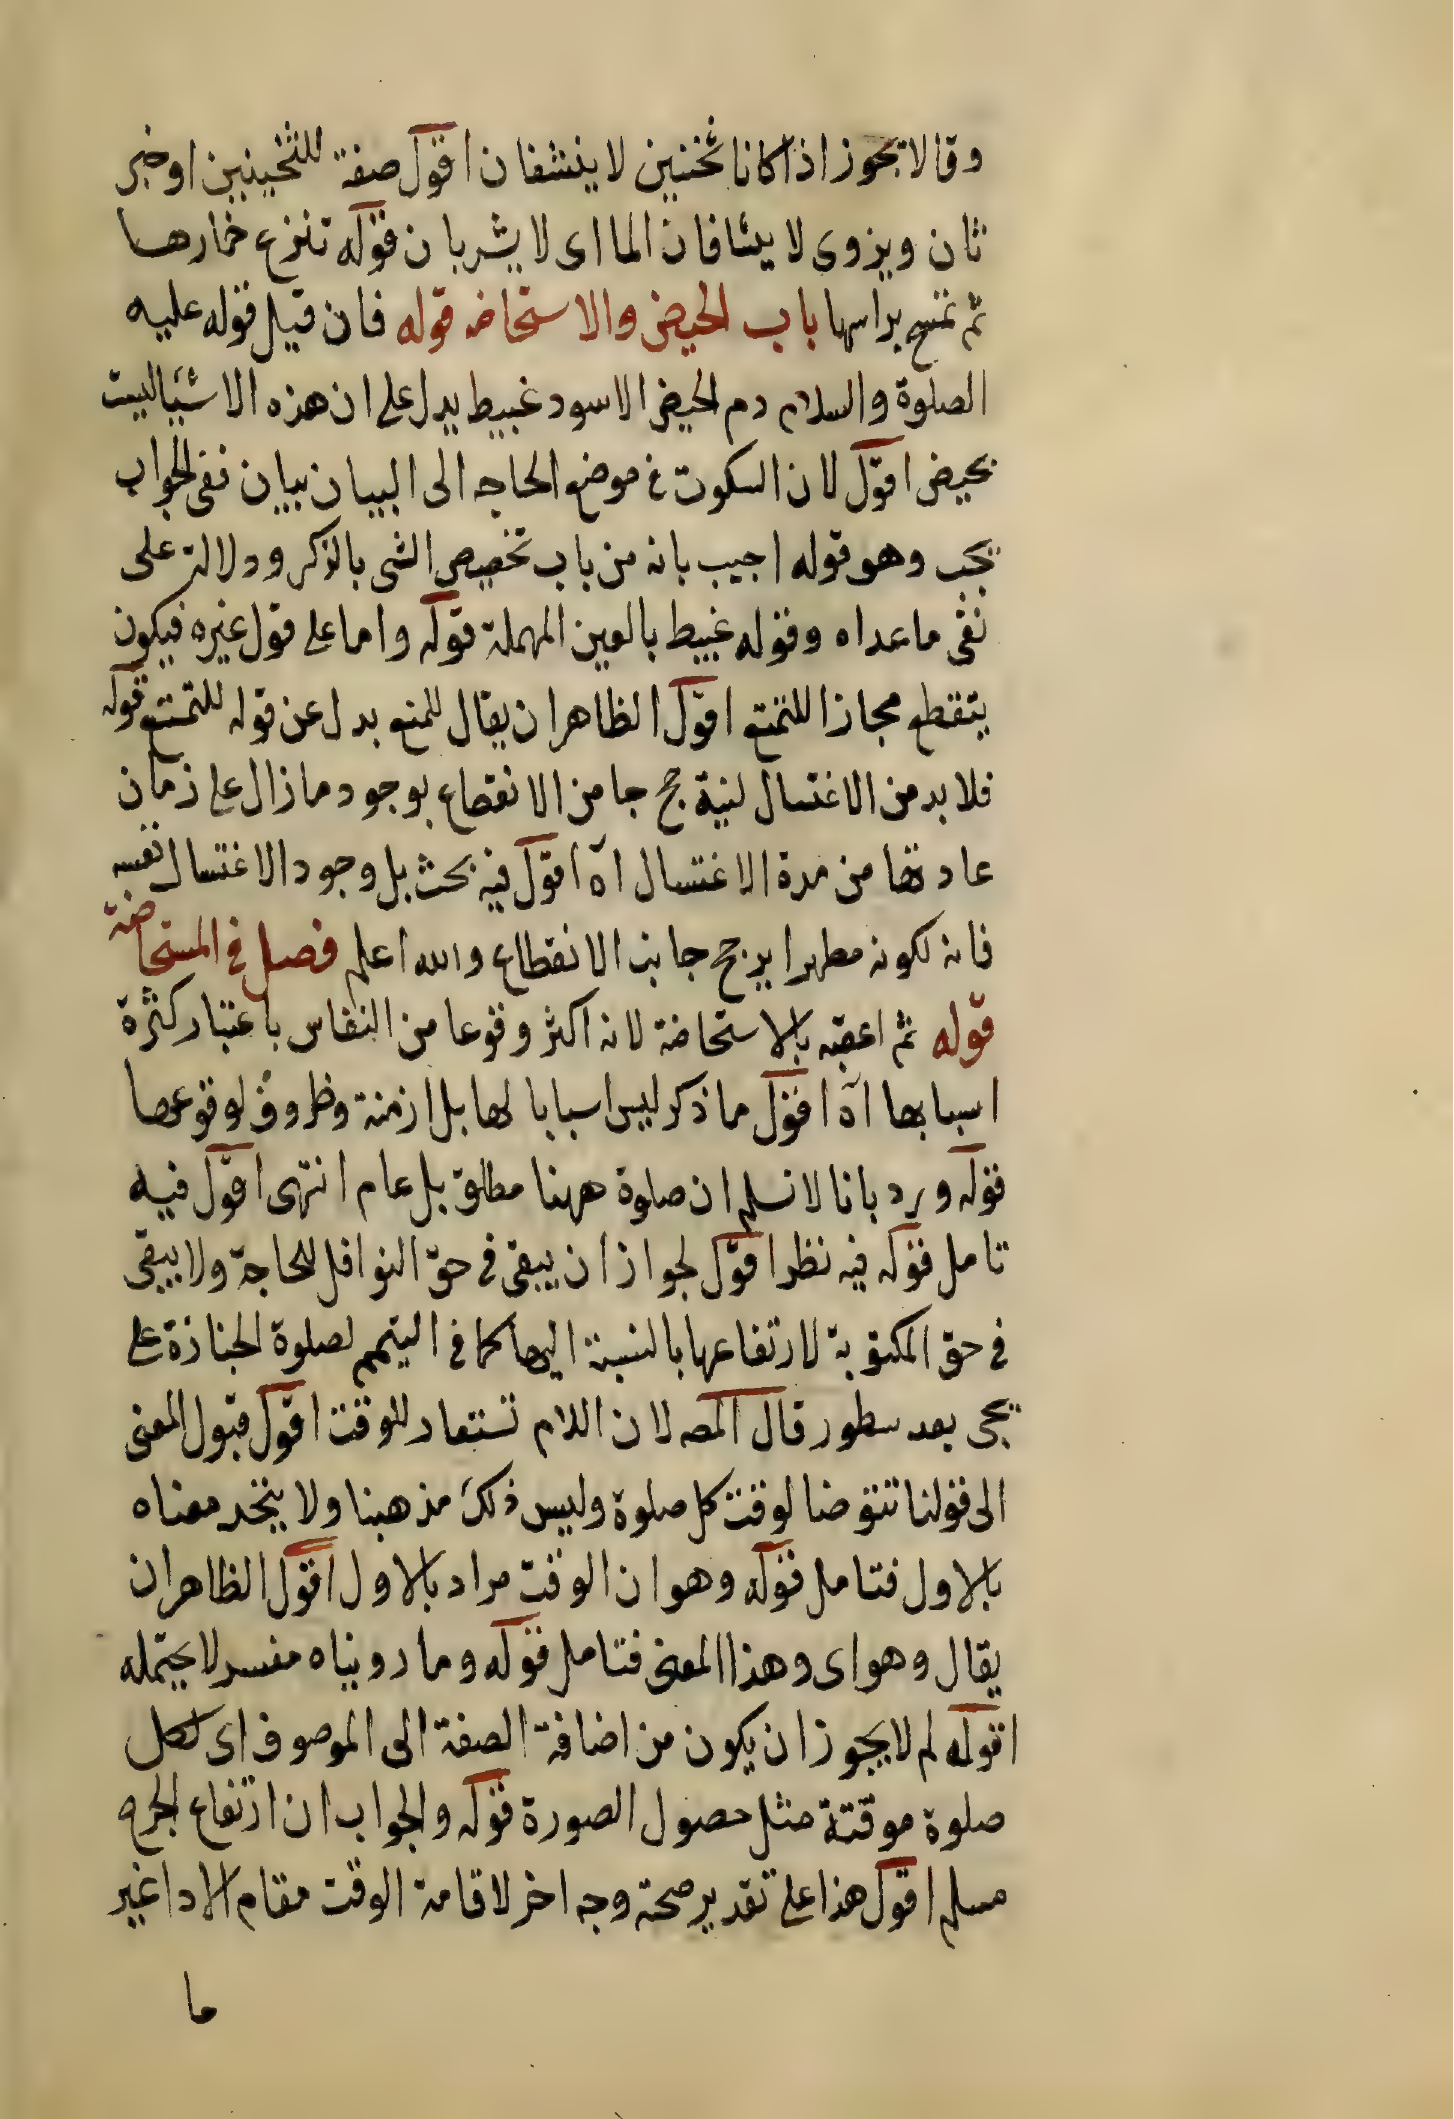 وقالا تجوز اذا كانا ثخنين لا ينشفان اقول صفة للثخينين او خبر
ثان ويروى لا ينشفان الما اى لا يشربان قوله تنزع خمارها
ثم تمسح براسها باب الحيض والاستحاضه قوله فان قيل قوله عليه
الصلوة والسلام دم الحيض الاسود غبيط يدل على ان هذه الاشيا ليست
بحيض اقول لان السكوت فى موضع الحاجه الى البيان بيان نفى الجواب
يجب وهو قوله اجيب بانه من باب تخصيص الشى بالذكر ودلالته على
نفى ماعداه وقوله غبيط بالعين المهملة قوله واما على قول غيره فيكون
يتقطع مجازا للتمتع اقول الظاهر ان يقال للمنع بدل عن قوله للتمتع قوله
فلا بد من الاغتسال لنية جح جا من الانقطاع بوجود ما زال على زمان
عادتها من مدة الاغتسال اه اقول فيه بحث بل وجود الاغتسال نفسه
فانه لكونه مطهرا يرجح جانب الانقطاع والله اعلم فصل فى المستحاضة
قوله ثم اعقبه بالاستحاضة لانه اكثر وقوعا من النفاس باعتبار كثرة
اسبابها اه اقول ما ذكر ليس اسبابا لها بل ازمنة وظروف لوقوعها
قوله ورد بانا لا نسلم ان صلوة ههنا مطلق بل عام انتهى اقول فيه
تامل قوله فيه نظر اقول لجواز ان يبقى فى حق النوافل للحاجة ولا يبقى
فى حق المكتوبة لارتفاعها بالنسبة اليها كما فى التيمم لصلوة الجنازة على
يجى بعد سطور قال المصه لان اللام تستعار للوقت اقول قبول المعنى
الى قولنا تتوضا لوقت كل صلوة وليس ذلك مذهبنا ولا يتحد معناه
بالاول فتامل قوله وهو ان الوقت مراد بالاول اقول الظاهر ان
يقال وهو اى وهذا المعنى فتامل قوله وما رويناه مفسر لا يحتمله
اقوله لم لا يجوز ان يكون من اضافة الصفة الى الموصوف اى لكل
صلوة موقتة مثل حصول الصورة قوله والجواب ان ارتفاع الجرح
مسلم اقول هذا على تقدير صحة وجه اخر لاقامة الوقت مقام الادا غير
ما